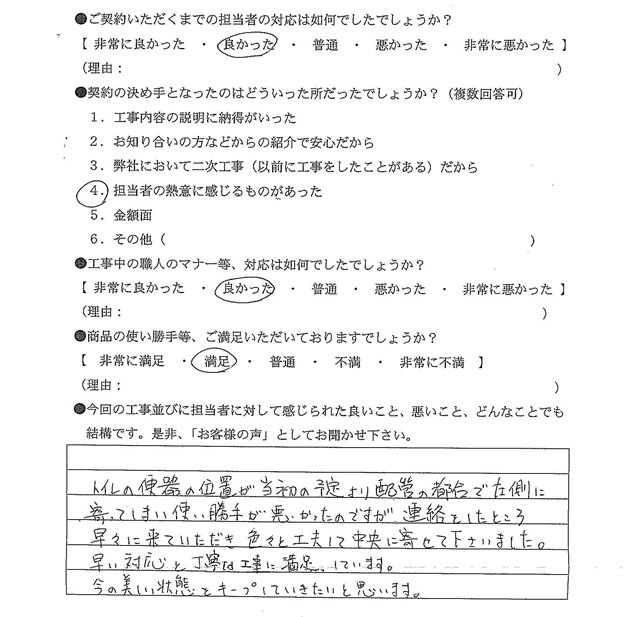 ●ご契約いただくまでの担当者の対応は如何でしたでしょうか？
【 非常に良かった ・ 良かった ・ 普通 ・ 悪かった ・ 非常に悪かった 】
（理由： ）
●契約の決め手となったのはどういった所だったでしょうか？（複数回答可）
１．工事内容の説明に納得がいった
２．お知り合いの方などからの紹介で安心だから
３．弊社において二次工事（以前に工事をしたことがある）だから
４．担当者の熱意に感じるものがあった
５．金額面
６．その他（ ）
●工事中の職人のマナー等、対応は如何でしたでしょうか？
【 非常に良かった ・ 良かった ・ 普通 ・ 悪かった ・ 非常に悪かった 】
（理由： ）
●商品の使い勝手等、ご満足いただいておりますでしょうか？
【 非常に満足 ・ 満足 ・ 普通 ・ 不満 ・ 非常に不満 】
（理由： ）
●今回の工事並びに担当者に対して感じられた良いこと、悪いこと、どんなことでも
結構です。是非、「お客様の声」としてお聞かせ下さい。
トイレの便器の位置が当初の予定より配管の都合で左側に
寄ってしまい使い勝手が悪かったのですが連絡をしたところ
早々に来ていただき色々と工夫して中央に寄せて下さいました。
早い対応と丁寧な工事に満足しています。
今の美しい状態をキープしていきたいと思います。